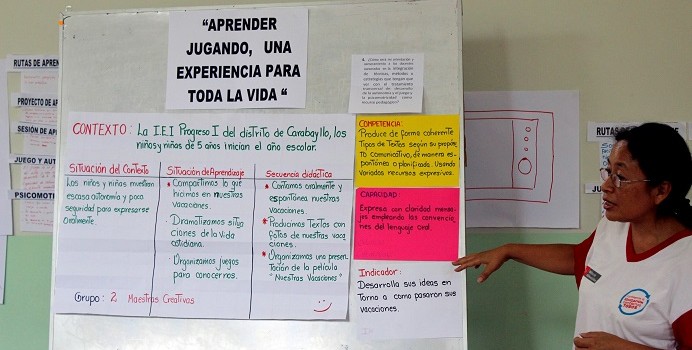 "APRENDER
JUGANDO, UNA
EXPERIENCIA PARA
TODA LA VIDA "
RUTAS DE APREN
PROYECTO DE AP
SESIÓN DE AP
JUEGO Y AUT
PSICOMOT
CONTEXTO: La I.E.I Progreso I del distrito de Carabayllo, los
niños y niñas de 5 años inician el año escolar.
Situación del Contexto
Los niños y niñas muestran
escasa autonomía y poca
seguridad para expresarse
oralmente.
Situación de Aprendizaje
• Compartimos lo que
hicimos en nuestras
vacaciones.
• Dramatizamos situa
ciones de la vida
cotidiana.
• Organizamos juegos
para conocernos.
Secuencia didáctica
* Contamos oralmente y
espontánea nuestras
vacaciones.
* Producimos Textos con
fotos de nuestras vaca
ciones.
* Organizamos una presen
tación de la película
"Nuestras Vacaciones"
Grupo: 2 Maestras Creativas
COMPETENCIA:
Produce de forma coherente
Tipos de Textos según su propósi
to comunicativo, de manera es-
pontánea o planificada. Usando
variados recursos expresivos.
CAPACIDAD:
Expresa con claridad mensa-
jes empleando las convencio-
nes del lenguaje oral.
Indicador:
Desarrolla sus ideas en
Torno a como pasaron sus
vacaciones.
RUTAS DE AP